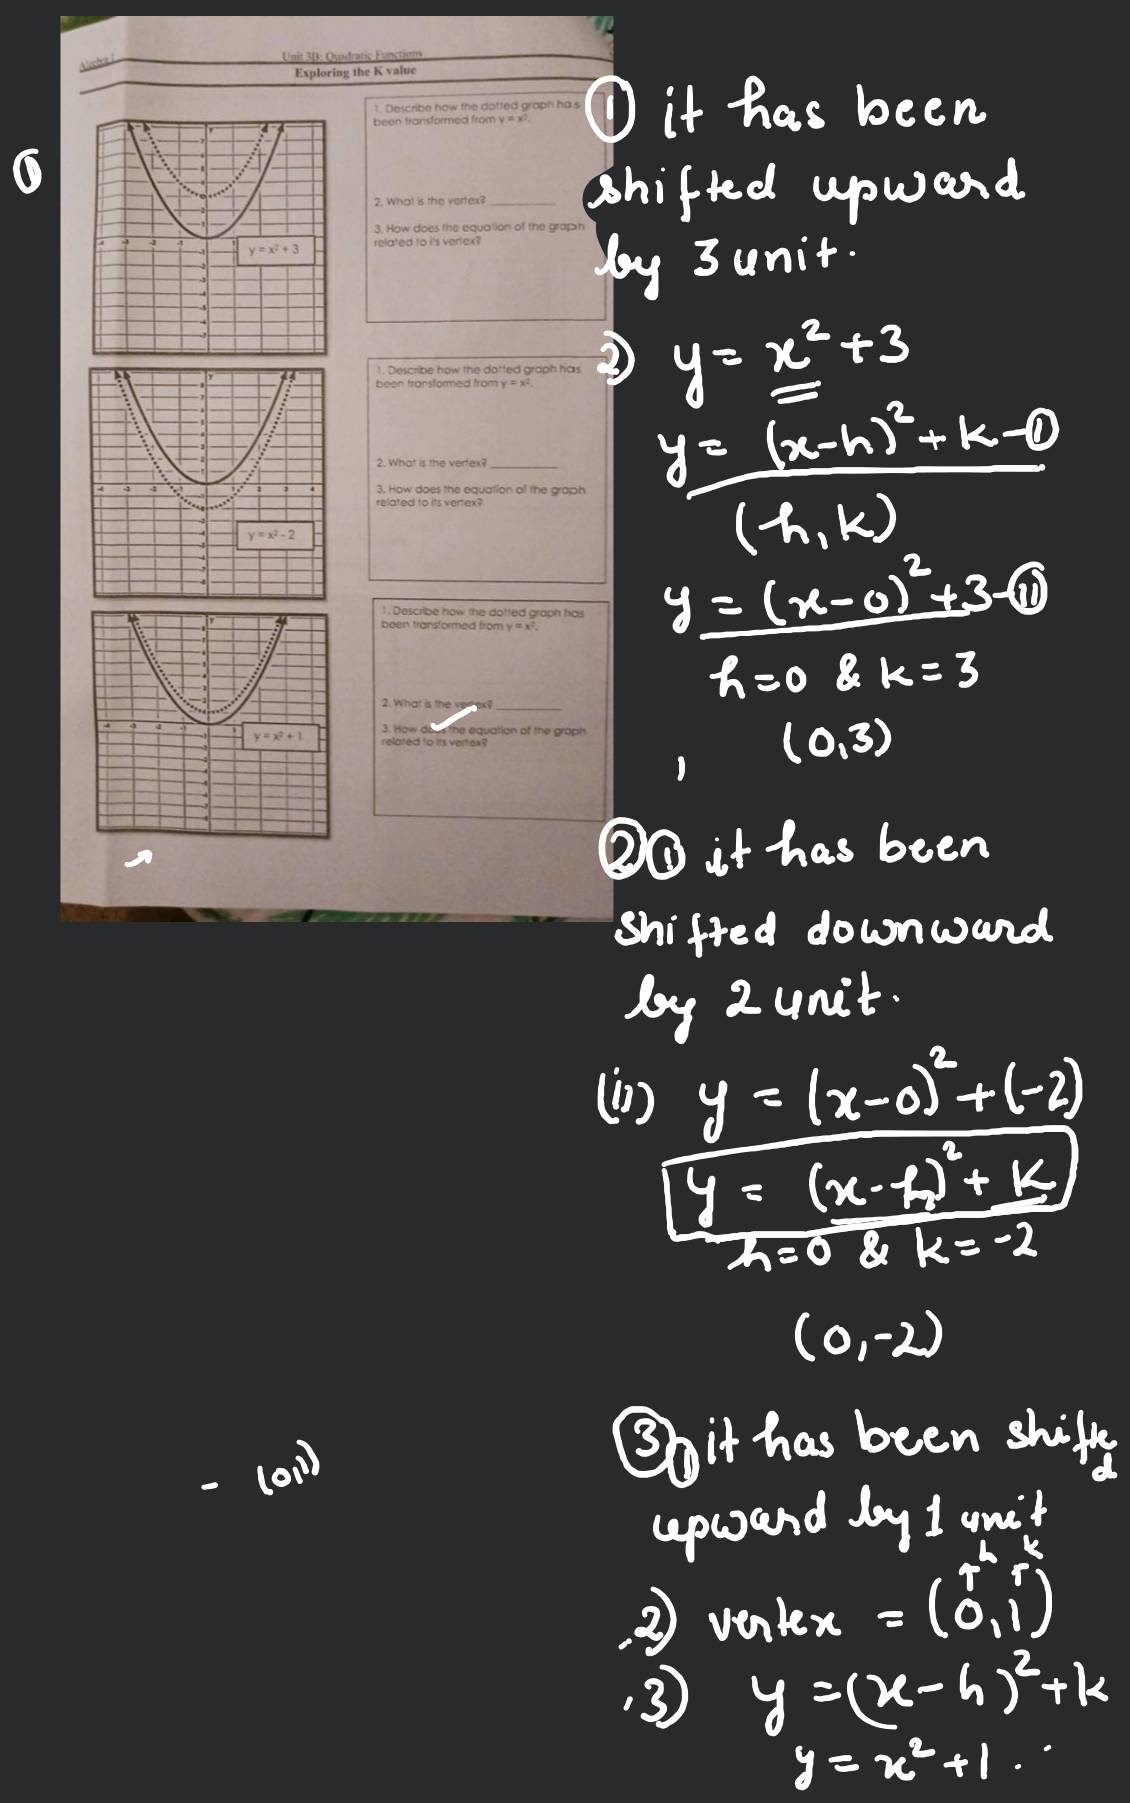 Algebra I
Unit 3B: Quadratic Functions
Exploring the K value
1. Describe how the dotted graph has
been transformed from y = x².
2. What is the vertex? ________
3. How does the equation of the graph
related to it's vertex?
y = x² + 3
1. Describe how the dotted graph has
been transformed from y = x².
2. What is the vertex? ________
3. How does the equation of the graph
related to its vertex?
y = x² - 2
1. Describe how the dotted graph has
been transformed from y = x².
2. What is the vertex? ________
3. How does the equation of the graph
related to its vertex?
y = x² + 1
① it has been
shifted upward
by 3 unit.
2) y = x² + 3
y = (x-h)² + k - ①
(h, k)
y = (x-0)² + 3 - ⑪
h=0 & k=3
(0,3)
② ① it has been
shifted downward
by 2 unit.
(ii) y = (x-0)² + (-2)
y = (x-h)² + k
h=0 & k=-2
(0,-2)
③ ① it has been shifted
upward by 1 unit
h k
2) vertex = (0,1)
3) y = (x-h)² + k
y = x² + 1 .
- (0,1)